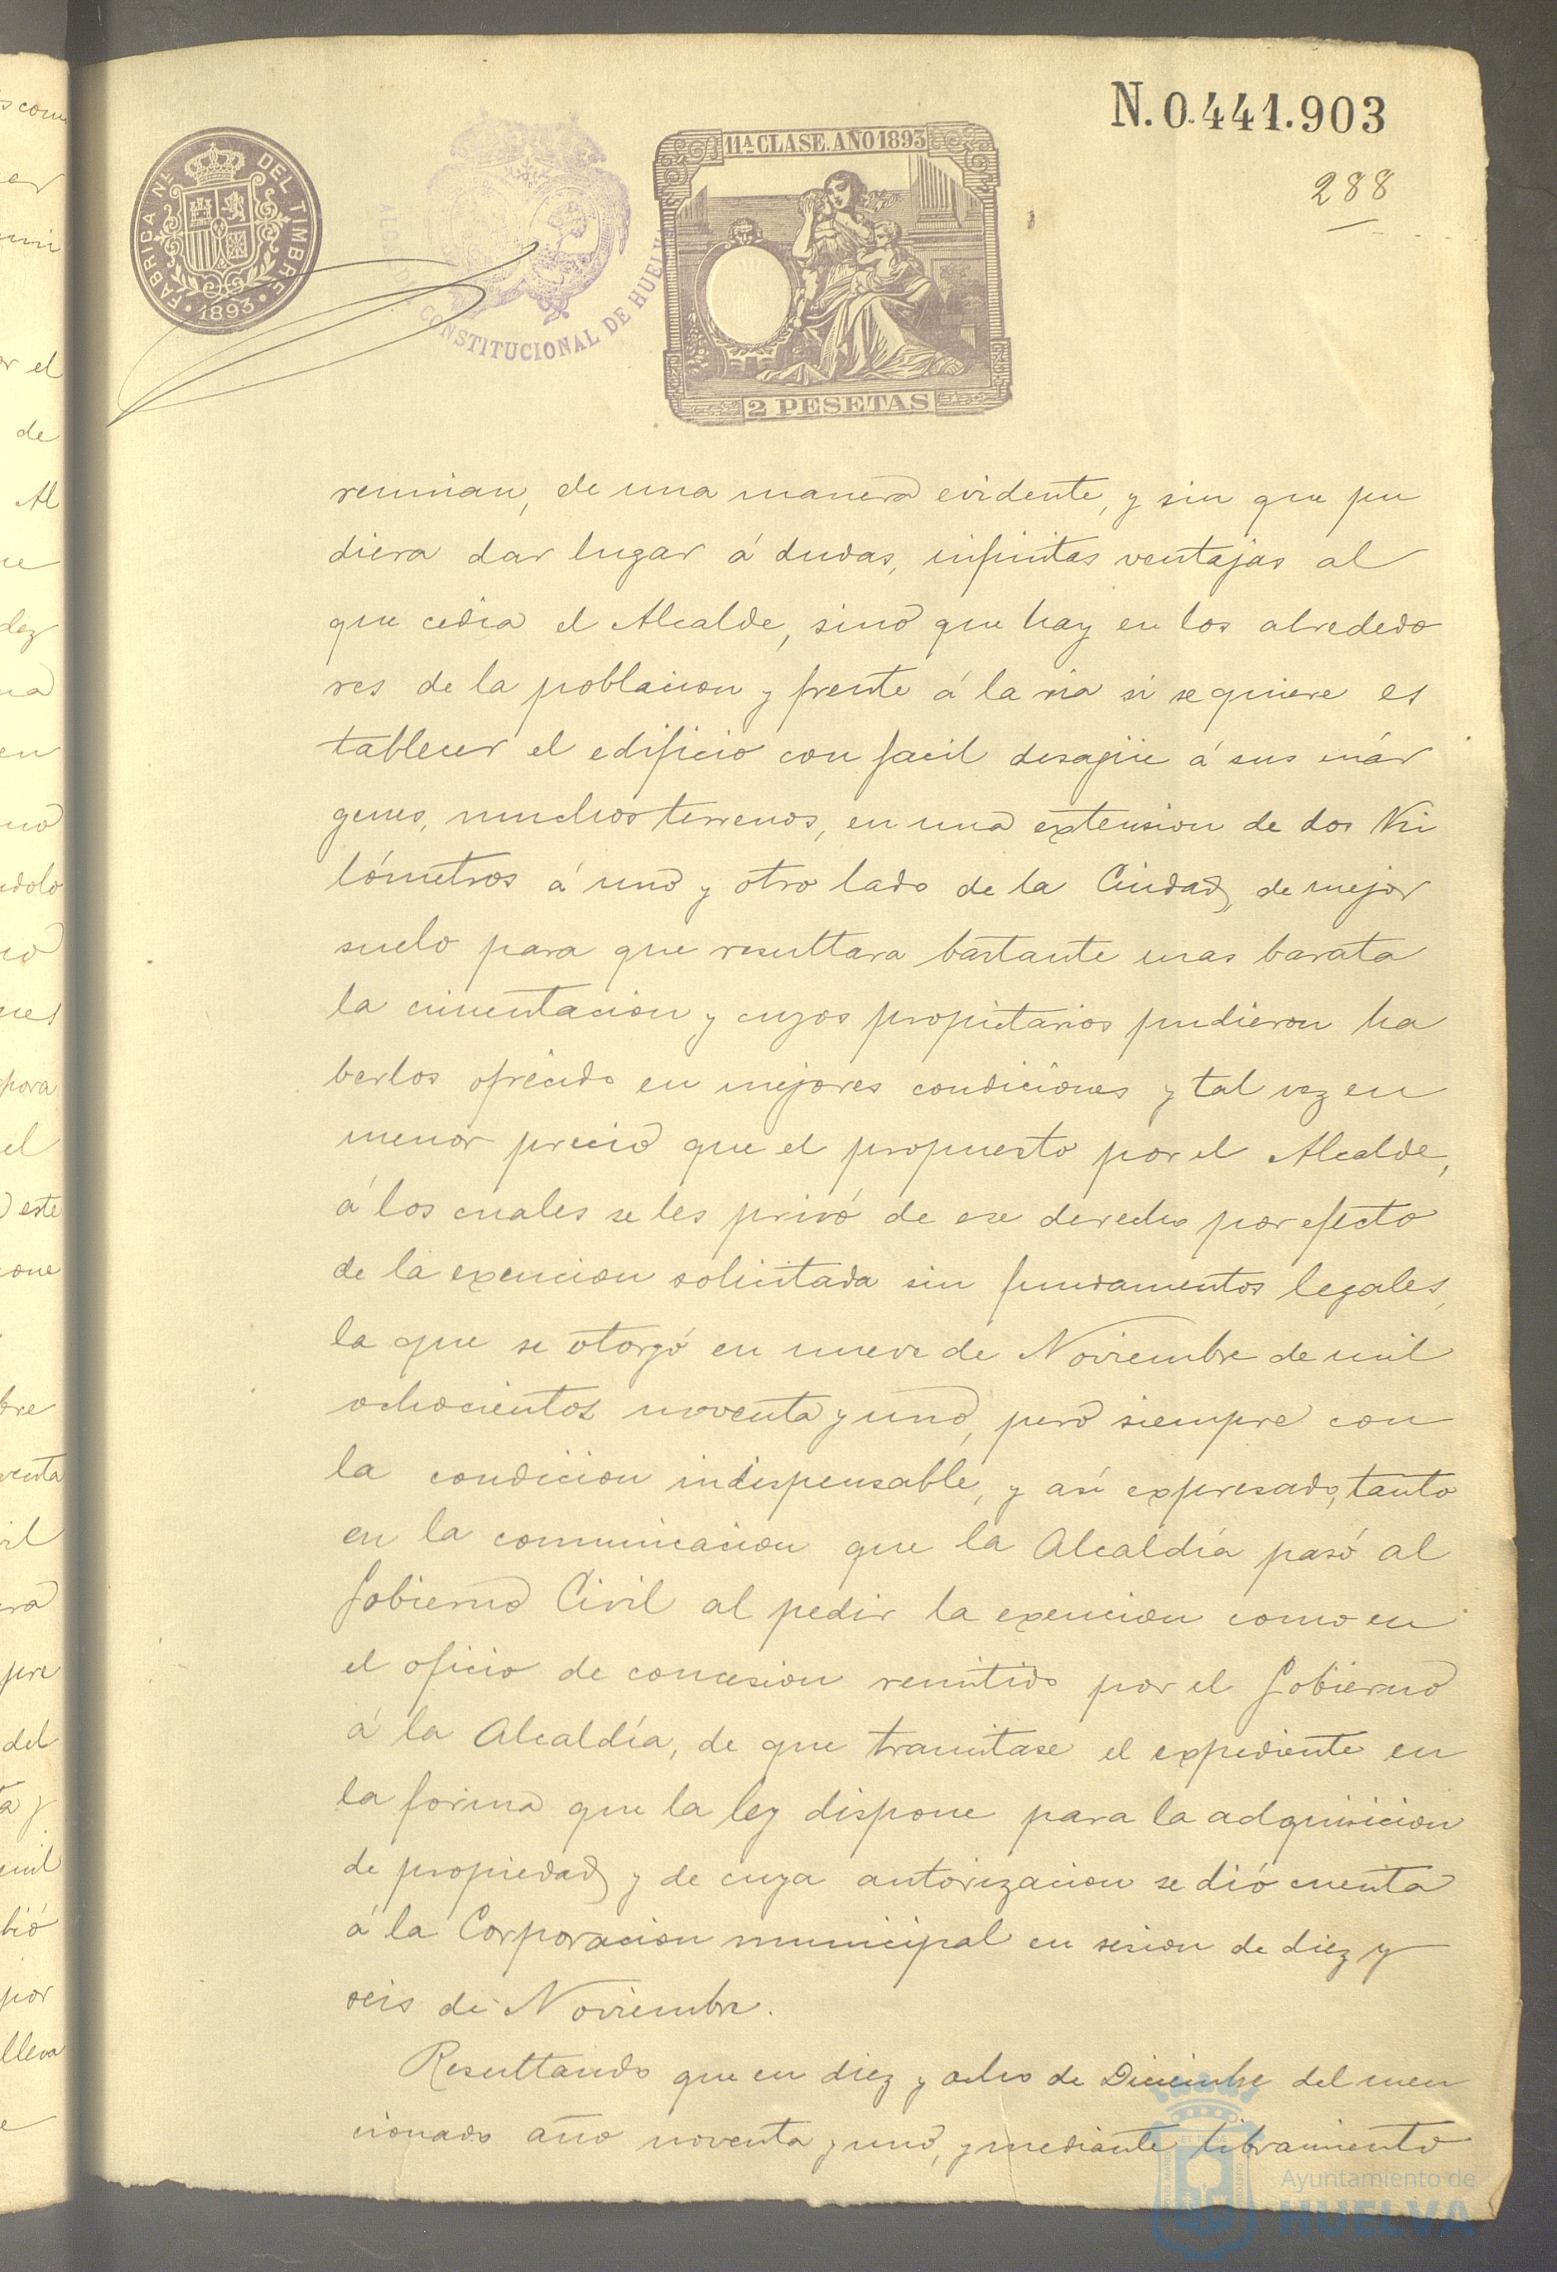 N. 0.441.903
288
FABRICA NAL DEL TIMBRE
1893
CONSTITUCIONAL DE HUELVA
11ª CLASE. AÑO 1893
2 PESETAS
reunian, de una manera evidente, y sin que pu
diera dar lugar á dudas, infinitas ventajas al
que cedia el Alcalde, sino que hay en los alrededo
res de la poblacion y frente á la ria si se quiere es
tablecer el edificio con facil desagüe á sus már
genes, muchos terrenos, en una extension de dos Ki
lómetros á uno y otro lado de la Ciudad, de mejor
suelo para que resultara bastante mas barata
la cimentacion y cuyos propietarios pudieron ha
berlos ofrecido en mejores condiciones y tal vez en
menor precio que el propuesto por el Alcalde,
á los cuales se les privó de ese derecho por efecto
de la exencion solicitada sin fundamentos legales,
la que se otorgó en nueve de Noviembre de mil
ochocientos noventa y uno, pero siempre con
la condicion indispensable, y así expresado, tanto
en la comunicacion que la Alcaldía pasó al
Gobierno Civil al pedir la exencion como en
el oficio de concesion remitido por el Gobierno
á la Alcaldía, de que tramitase el expediente en
la forma que la ley dispone para la adquisicion
de propiedad y de cuya autorizacion se dió cuenta
á la Corporacion municipal en sesion de diez y
seis de Noviembre.
Resultando que en diez y ocho de Diciembre del men
cionado año noventa y uno, y mediante libramiento
Ayuntamiento de
HUELVA